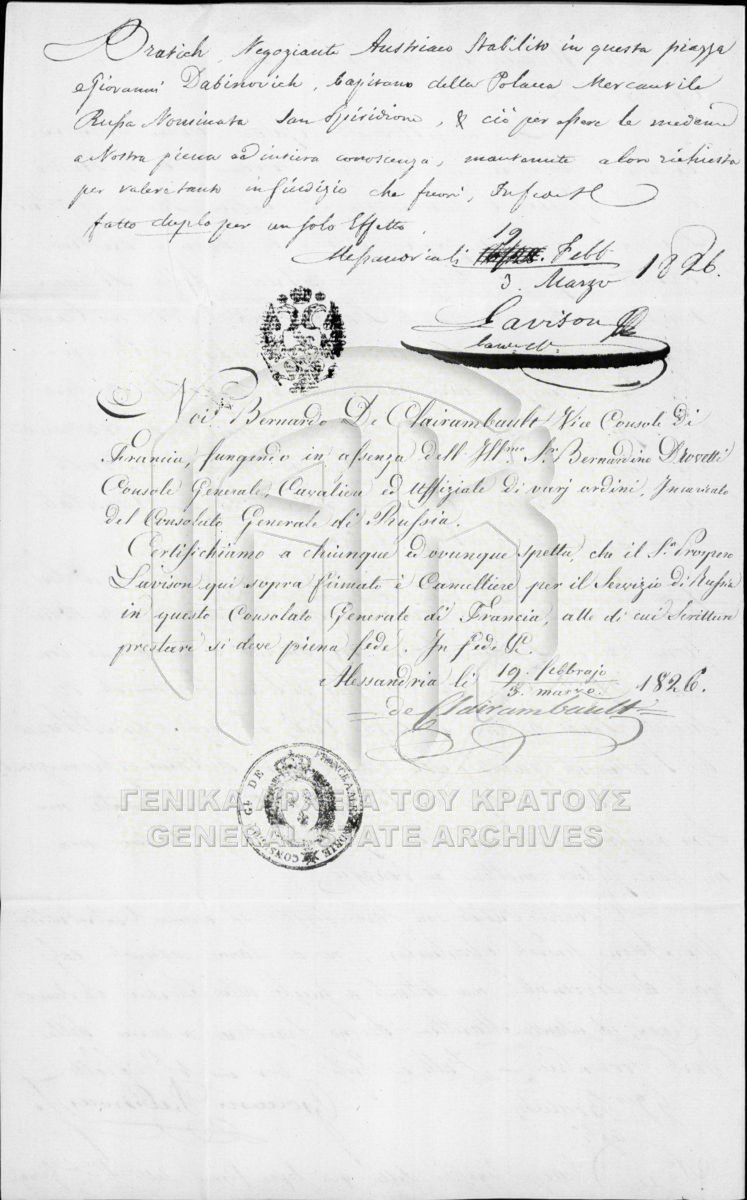 Bratich, Negoziante Austriaco Stabilito in questa piazza
e Giovanni Dabinovich, Capitano della Polacca Mercantile
Russa Nominata San Spiridione, & ciò per essere le medeme
a Nostra piena ed intiera conoscenza, mantenute a loro richiesta
per valere tanto in Giudizio che fuori, In fede &
fatto duplo per un solo Effetto.
Alessandria li 19 Febb 1826.
3. Marzo
Lavison
Canc.
Noi Bernardo De Clairambault Vice Console Di
Francia, fungendo in assenza dell' Ill.mo S.r Bernardino Drovetti
Console Generale, Cavaliere ed Uffiziale di varj ordini, Incaricato
del Consolato Generale di Russia.
Certifichiamo a chiunque ed ovunque spetta, che il S.r Prospero
Lavison qui sopra firmato è Cancelliere per il Servizio di Russia
in questo Consolato Generale di Francia, alle di cui Scritture
prestare si deve piena fede. In fede &c.
Alessandria li 19. febbrajo 1826.
3. marzo.
de Clairambault
CONSULAT G.L DE FRANCE A ALEXANDRIE
ΓΕΝΙΚΑ ΑΡΧΕΙΑ ΤΟΥ ΚΡΑΤΟΥΣ
GENERAL STATE ARCHIVES